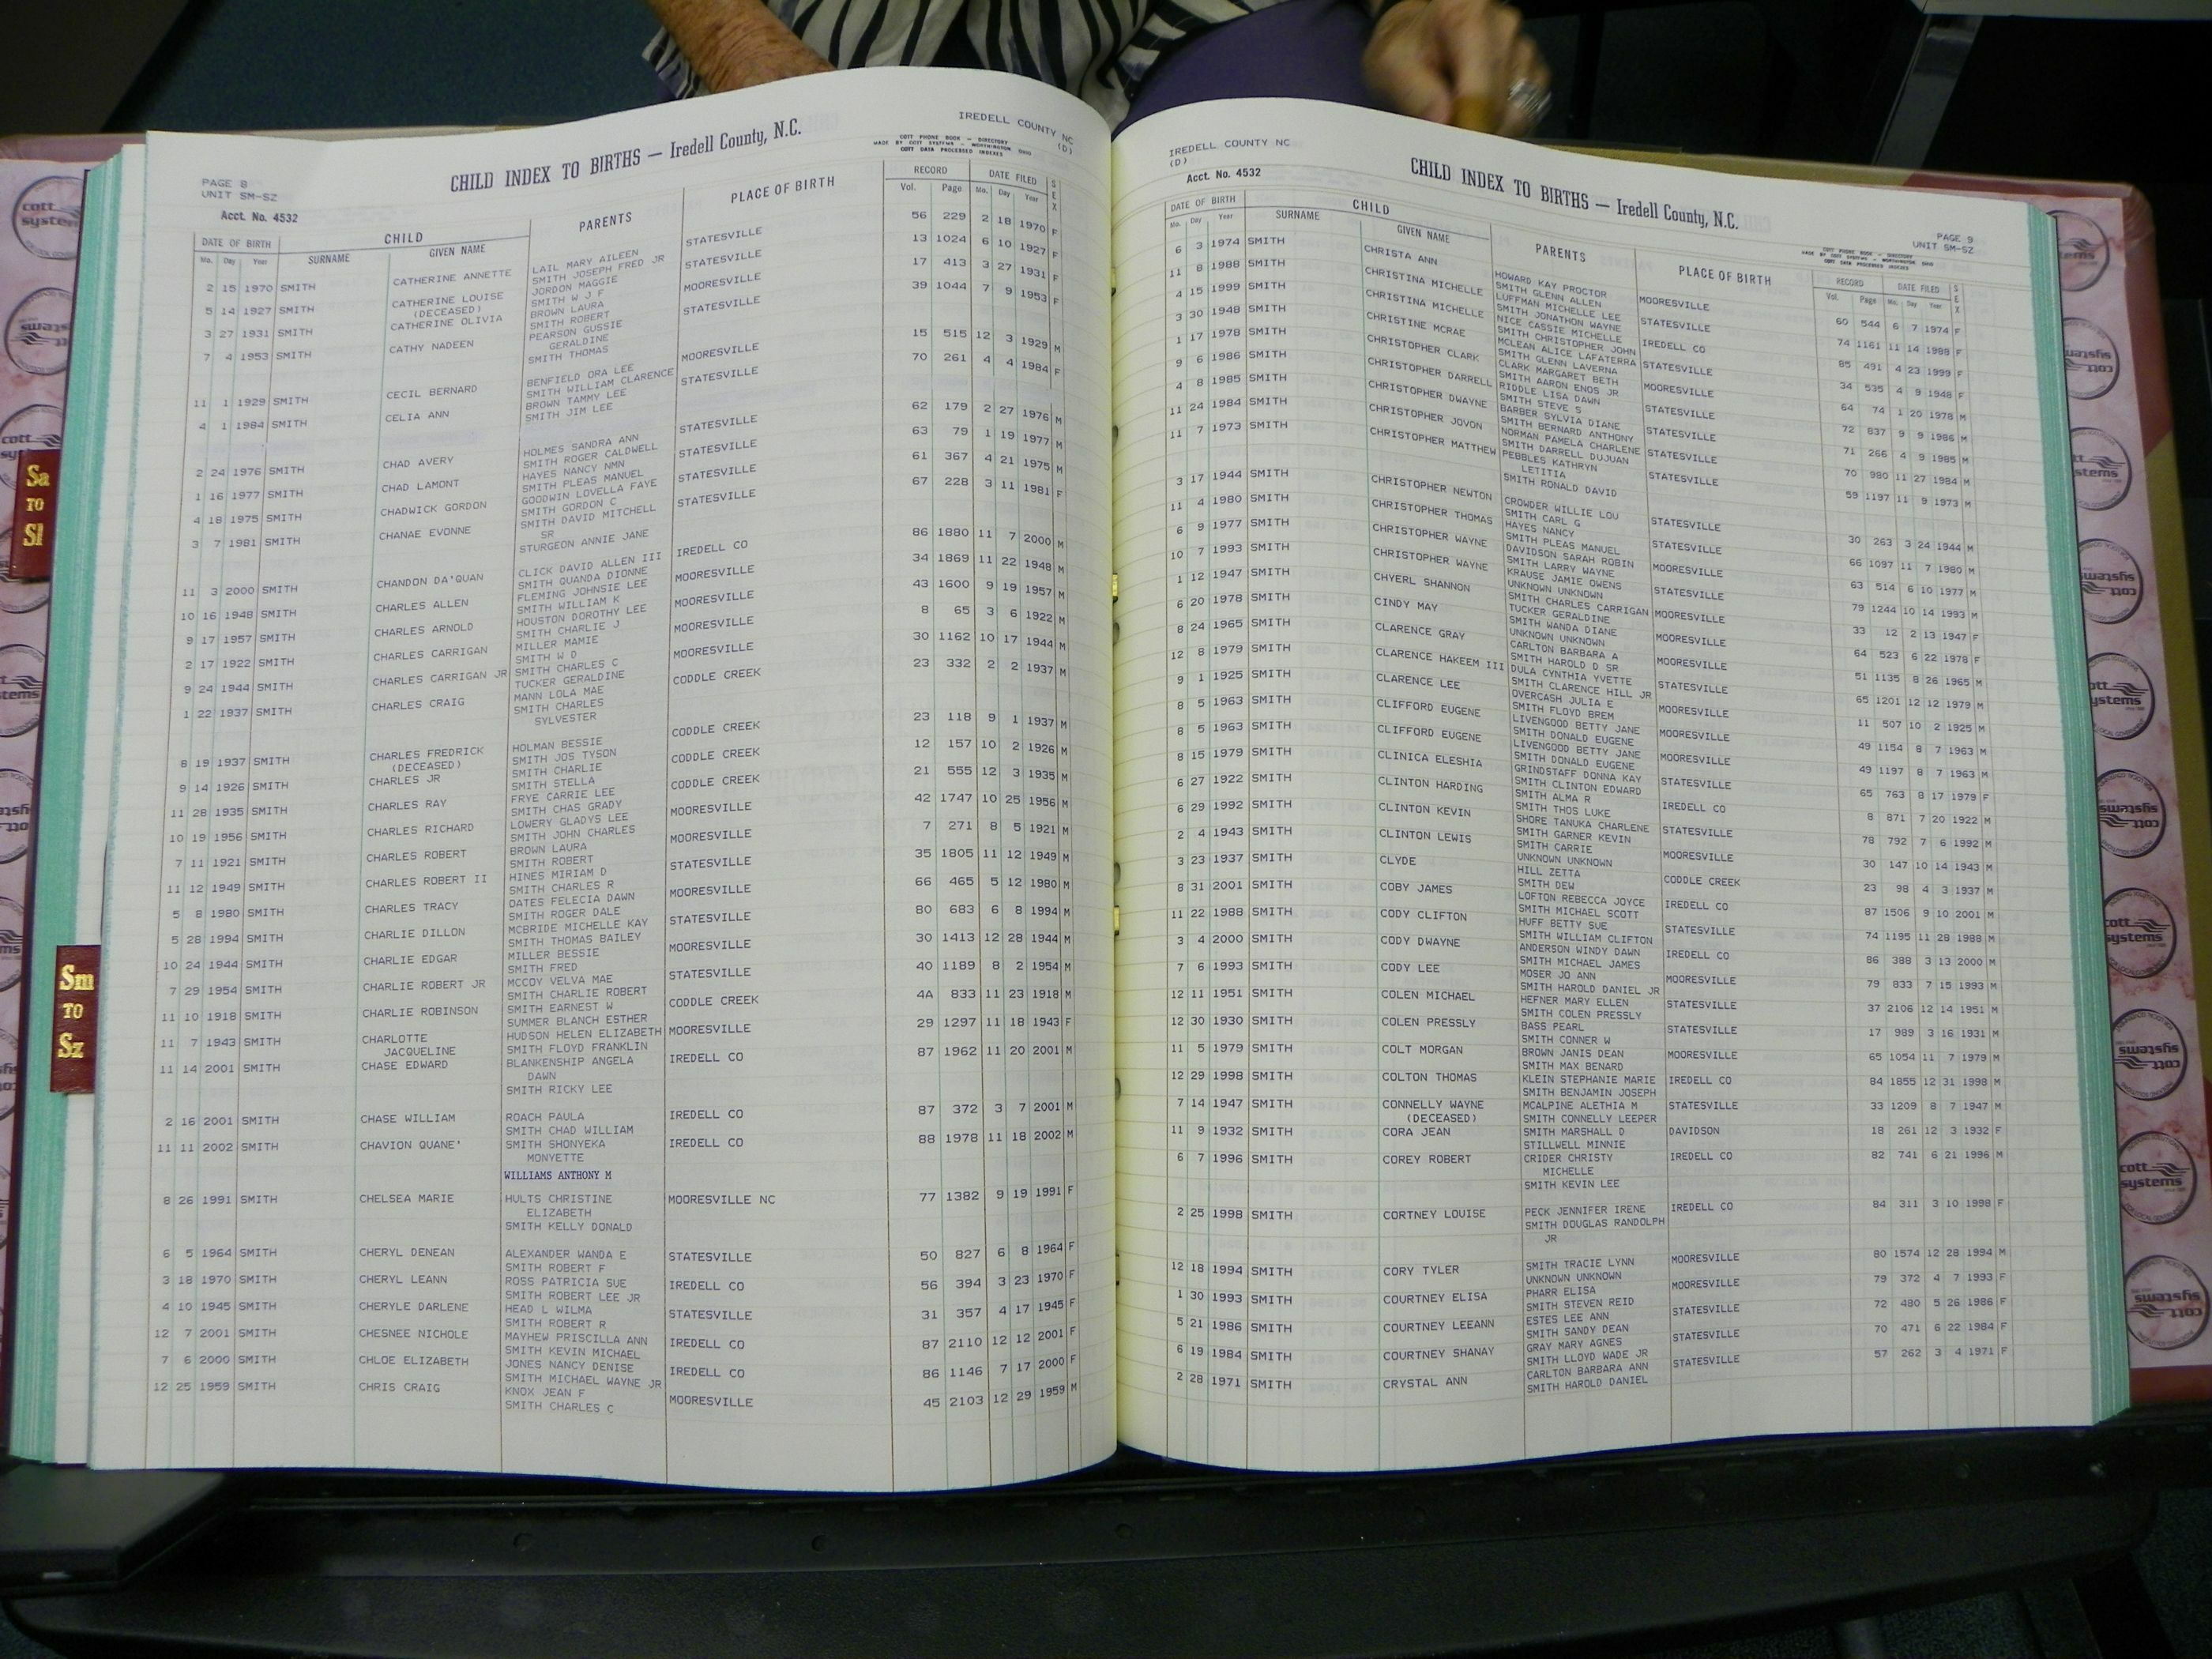 IREDELL COUNTY NC
(D)
CHILD INDEX TO BIRTHS — Iredell County, N.C.
COTT PHONE BOOK — DIRECTORY
MADE BY COTT SYSTEMS — WORTHINGTON OHIO
COTT DATA PROCESSED INDEXES
PAGE 8
UNIT SM-SZ
Acct. No. 4532
DATE OF BIRTH CHILD PARENTS PLACE OF BIRTH RECORD DATE FILED SEX
Mo. Day Year SURNAME GIVEN NAME Vol. Page Mo. Day Year
2 15 1970 SMITH CATHERINE ANNETTE LAIL MARY AILEEN STATESVILLE 56 229 2 18 1970 F
SMITH JOSEPH FRED JR
5 14 1927 SMITH CATHERINE LOUISE JORDON MAGGIE STATESVILLE 13 1024 6 10 1927 F
(DECEASED) SMITH W J F
3 27 1931 SMITH CATHERINE OLIVIA BROWN LAURA MOORESVILLE 17 413 3 27 1931 F
SMITH ROBERT
7 4 1953 SMITH CATHY NADEEN PEARSON GUSSIE STATESVILLE 39 1044 7 9 1953 F
GERALDINE
SMITH THOMAS
11 1 1929 SMITH CECIL BERNARD BENFIELD ORA LEE MOORESVILLE 15 515 12 3 1929 M
SMITH WILLIAM CLARENCE
4 1 1984 SMITH CELIA ANN BROWN TAMMY LEE STATESVILLE 70 261 4 4 1984 F
SMITH JIM LEE
2 24 1976 SMITH CHAD AVERY HOLMES SANDRA ANN STATESVILLE 62 179 2 27 1976 M
SMITH ROGER CALDWELL
1 16 1977 SMITH CHAD LAMONT HAYES NANCY NMN STATESVILLE 63 79 1 19 1977 M
SMITH PLEAS MANUEL
4 18 1975 SMITH CHADWICK GORDON GOODWIN LOVELLA FAYE STATESVILLE 61 367 4 21 1975 M
SMITH GORDON C
3 7 1981 SMITH CHANAE EVONNE SMITH DAVID MITCHELL STATESVILLE 67 228 3 11 1981 F
SR
STURGEON ANNIE JANE
11 3 2000 SMITH CHANDON DA'QUAN CLICK DAVID ALLEN III IREDELL CO 86 1880 11 7 2000 M
SMITH QUANDA DIONNE
10 16 1948 SMITH CHARLES ALLEN FLEMING JOHNSIE LEE MOORESVILLE 34 1869 11 22 1948 M
SMITH WILLIAM K
9 17 1957 SMITH CHARLES ARNOLD HOUSTON DOROTHY LEE MOORESVILLE 43 1600 9 19 1957 M
SMITH CHARLIE J
2 17 1922 SMITH CHARLES CARRIGAN MILLER MAMIE MOORESVILLE 8 65 3 6 1922 M
SMITH W D
9 24 1944 SMITH CHARLES CARRIGAN JR SMITH CHARLES C MOORESVILLE 30 1162 10 17 1944 M
TUCKER GERALDINE
1 22 1937 SMITH CHARLES CRAIG MANN LOLA MAE CODDLE CREEK 23 332 2 2 1937 M
SMITH CHARLES
SYLVESTER
8 19 1937 SMITH CHARLES FREDRICK HOLMAN BESSIE CODDLE CREEK 23 118 9 1 1937 M
(DECEASED) SMITH JOS TYSON
9 14 1926 SMITH CHARLES JR SMITH CHARLIE CODDLE CREEK 12 157 10 2 1926 M
SMITH STELLA
11 28 1935 SMITH CHARLES RAY FRYE CARRIE LEE CODDLE CREEK 21 555 12 3 1935 M
SMITH CHAS GRADY
10 19 1956 SMITH CHARLES RICHARD LOWERY GLADYS LEE MOORESVILLE 42 1747 10 25 1956 M
SMITH JOHN CHARLES
7 11 1921 SMITH CHARLES ROBERT BROWN LAURA MOORESVILLE 7 271 8 5 1921 M
SMITH ROBERT
11 12 1949 SMITH CHARLES ROBERT II HINES MIRIAM D STATESVILLE 35 1805 11 12 1949 M
SMITH CHARLES R
5 8 1980 SMITH CHARLES TRACY DATES FELECIA DAWN MOORESVILLE 66 465 5 12 1980 M
SMITH ROGER DALE
5 28 1994 SMITH CHARLIE DILLON MCBRIDE MICHELLE KAY STATESVILLE 80 683 6 8 1994 M
SMITH THOMAS BAILEY
10 24 1944 SMITH CHARLIE EDGAR MILLER BESSIE MOORESVILLE 30 1413 12 28 1944 M
SMITH FRED
7 29 1954 SMITH CHARLIE ROBERT JR MCCOY VELVA MAE STATESVILLE 40 1189 8 2 1954 M
SMITH CHARLIE ROBERT
11 10 1918 SMITH CHARLIE ROBINSON SMITH EARNEST W CODDLE CREEK 4A 833 11 23 1918 M
SUMMER BLANCH ESTHER
11 7 1943 SMITH CHARLOTTE HUDSON HELEN ELIZABETH MOORESVILLE 29 1297 11 18 1943 F
JACQUELINE SMITH FLOYD FRANKLIN
11 14 2001 SMITH CHASE EDWARD BLANKENSHIP ANGELA IREDELL CO 87 1962 11 20 2001 M
DAWN
SMITH RICKY LEE
2 16 2001 SMITH CHASE WILLIAM ROACH PAULA IREDELL CO 87 372 3 7 2001 M
SMITH CHAD WILLIAM
11 11 2002 SMITH CHAVION QUANE' SMITH SHONYEKA IREDELL CO 88 1978 11 18 2002 M
MONYETTE
WILLIAMS ANTHONY M
8 26 1991 SMITH CHELSEA MARIE HULTS CHRISTINE MOORESVILLE NC 77 1382 9 19 1991 F
ELIZABETH
SMITH KELLY DONALD
6 5 1964 SMITH CHERYL DENEAN ALEXANDER WANDA E STATESVILLE 50 827 6 8 1964 F
SMITH ROBERT F
3 18 1970 SMITH CHERYL LEANN ROSS PATRICIA SUE IREDELL CO 56 394 3 23 1970 F
SMITH ROBERT LEE JR
4 10 1945 SMITH CHERYLE DARLENE HEAD L WILMA STATESVILLE 31 357 4 17 1945 F
SMITH ROBERT R
12 7 2001 SMITH CHESNEE NICHOLE MAYHEW PRISCILLA ANN IREDELL CO 87 2110 12 12 2001 F
SMITH KEVIN MICHAEL
7 6 2000 SMITH CHLOE ELIZABETH JONES NANCY DENISE IREDELL CO 86 1146 7 17 2000 F
SMITH MICHAEL WAYNE JR
12 25 1959 SMITH CHRIS CRAIG KNOX JEAN F MOORESVILLE 45 2103 12 29 1959 M
SMITH CHARLES C
IREDELL COUNTY NC
(D)
Acct. No. 4532
CHILD INDEX TO BIRTHS — Iredell County, N.C.
PAGE 9
UNIT SM-SZ
COTT PHONE BOOK — DIRECTORY
MADE BY COTT SYSTEMS — WORTHINGTON OHIO
COTT DATA PROCESSED INDEXES
DATE OF BIRTH CHILD PARENTS PLACE OF BIRTH RECORD DATE FILED SEX
Mo. Day Year SURNAME GIVEN NAME Vol. Page Mo. Day Year
6 3 1974 SMITH CHRISTA ANN HOWARD KAY PROCTOR MOORESVILLE 60 544 6 7 1974 F
SMITH GLENN ALLEN
11 8 1988 SMITH CHRISTINA MICHELLE LUFFMAN MICHELLE LEE STATESVILLE 74 1161 11 14 1988 F
SMITH JONATHON WAYNE
4 15 1999 SMITH CHRISTINA MICHELLE NICE CASSIE MICHELLE IREDELL CO 85 491 4 23 1999 F
SMITH CHRISTOPHER JOHN
3 30 1948 SMITH CHRISTINE MCRAE MCLEAN ALICE LAFATERRA STATESVILLE 34 535 4 9 1948 F
SMITH GLENN LAVERNA
1 17 1978 SMITH CHRISTOPHER CLARK CLARK MARGARET BETH MOORESVILLE 64 74 1 20 1978 M
SMITH AARON ENOS JR
9 6 1986 SMITH CHRISTOPHER DARRELL RIDDLE LISA DAWN STATESVILLE 72 837 9 9 1986 M
SMITH STEVE S
4 8 1985 SMITH CHRISTOPHER DWAYNE BARBER SYLVIA DIANE STATESVILLE 71 266 4 9 1985 M
SMITH BERNARD ANTHONY
11 24 1984 SMITH CHRISTOPHER JOVON NORMAN PAMELA CHARLENE STATESVILLE 70 980 11 27 1984 M
SMITH DARRELL DUJUAN
11 7 1973 SMITH CHRISTOPHER MATTHEW PEBBLES KATHRYN STATESVILLE 59 1197 11 9 1973 M
LETITIA
SMITH RONALD DAVID
3 17 1944 SMITH CHRISTOPHER NEWTON CROWDER WILLIE LOU STATESVILLE 30 263 3 24 1944 M
SMITH CARL G
11 4 1980 SMITH CHRISTOPHER THOMAS HAYES NANCY STATESVILLE 66 1097 11 7 1980 M
SMITH PLEAS MANUEL
6 9 1977 SMITH CHRISTOPHER WAYNE DAVIDSON SARAH ROBIN MOORESVILLE 63 514 6 10 1977 M
SMITH LARRY WAYNE
10 7 1993 SMITH CHRISTOPHER WAYNE KRAUSE JAMIE OWENS STATESVILLE 79 1244 10 14 1993 M
UNKNOWN UNKNOWN
1 12 1947 SMITH CHYERL SHANNON SMITH CHARLES CARRIGAN MOORESVILLE 33 12 2 13 1947 F
TUCKER GERALDINE
6 20 1978 SMITH CINDY MAY SMITH WANDA DIANE MOORESVILLE 64 523 6 22 1978 F
UNKNOWN UNKNOWN
8 24 1965 SMITH CLARENCE GRAY CARLTON BARBARA A MOORESVILLE 51 1135 8 26 1965 M
SMITH HAROLD D SR
12 8 1979 SMITH CLARENCE HAKEEM III DULA CYNTHIA YVETTE STATESVILLE 65 1201 12 12 1979 M
SMITH CLARENCE HILL JR
9 1 1925 SMITH CLARENCE LEE OVERCASH JULIA E MOORESVILLE 11 507 10 2 1925 M
SMITH FLOYD BREM
8 5 1963 SMITH CLIFFORD EUGENE LIVENGOOD BETTY JANE MOORESVILLE 49 1154 8 7 1963 M
SMITH DONALD EUGENE
8 5 1963 SMITH CLIFFORD EUGENE LIVENGOOD BETTY JANE MOORESVILLE 49 1197 8 7 1963 M
SMITH DONALD EUGENE
8 15 1979 SMITH CLINICA ELESHIA GRINDSTAFF DONNA KAY STATESVILLE 65 763 8 17 1979 F
SMITH CLINTON EDWARD
6 27 1922 SMITH CLINTON HARDING SMITH ALMA R IREDELL CO 8 871 7 20 1922 M
SMITH THOS LUKE
6 29 1992 SMITH CLINTON KEVIN SHORE TANUKA CHARLENE STATESVILLE 78 792 7 6 1992 M
SMITH GARNER KEVIN
2 4 1943 SMITH CLINTON LEWIS SMITH CARRIE MOORESVILLE 30 147 10 14 1943 M
UNKNOWN UNKNOWN
3 23 1937 SMITH CLYDE HILL ZETTA CODDLE CREEK 23 98 4 3 1937 M
SMITH DEW
8 31 2001 SMITH COBY JAMES LOFTON REBECCA JOYCE IREDELL CO 87 1506 9 10 2001 M
SMITH MICHAEL SCOTT
11 22 1988 SMITH CODY CLIFTON HUFF BETTY SUE STATESVILLE 74 1195 11 28 1988 M
SMITH WILLIAM CLIFTON
3 4 2000 SMITH CODY DWAYNE ANDERSON WINDY DAWN IREDELL CO 86 388 3 13 2000 M
SMITH MICHAEL JAMES
7 6 1993 SMITH CODY LEE MOSER JO ANN MOORESVILLE 79 833 7 15 1993 M
SMITH HAROLD DANIEL JR
12 11 1951 SMITH COLEN MICHAEL HEFNER MARY ELLEN STATESVILLE 37 2106 12 14 1951 M
SMITH COLEN PRESSLY
12 30 1930 SMITH COLEN PRESSLY BASS PEARL STATESVILLE 17 989 3 16 1931 M
SMITH CONNER W
11 5 1979 SMITH COLT MORGAN BROWN JANIS DEAN MOORESVILLE 65 1054 11 7 1979 M
SMITH MAX BENARD
12 29 1998 SMITH COLTON THOMAS KLEIN STEPHANIE MARIE IREDELL CO 84 1855 12 31 1998 M
SMITH BENJAMIN JOSEPH
7 14 1947 SMITH CONNELLY WAYNE MCALPINE ALETHIA M STATESVILLE 33 1209 8 7 1947 M
(DECEASED) SMITH CONNELLY LEEPER
11 9 1932 SMITH CORA JEAN SMITH MARSHALL D DAVIDSON 18 261 12 3 1932 F
STILLWELL MINNIE
6 7 1996 SMITH COREY ROBERT CRIDER CHRISTY IREDELL CO 82 741 6 21 1996 M
MICHELLE
SMITH KEVIN LEE
2 25 1998 SMITH CORTNEY LOUISE PECK JENNIFER IRENE IREDELL CO 84 311 3 10 1998 F
SMITH DOUGLAS RANDOLPH
JR
12 18 1994 SMITH CORY TYLER SMITH TRACIE LYNN MOORESVILLE 80 1574 12 28 1994 M
UNKNOWN UNKNOWN
1 30 1993 SMITH COURTNEY ELISA PHARR ELISA MOORESVILLE 79 372 4 7 1993 F
SMITH STEVEN REID
5 21 1986 SMITH COURTNEY LEEANN ESTES LEE ANN STATESVILLE 72 480 5 26 1986 F
SMITH SANDY DEAN
6 19 1984 SMITH COURTNEY SHANAY GRAY MARY AGNES STATESVILLE 70 471 6 22 1984 F
SMITH LLOYD WADE JR
2 28 1971 SMITH CRYSTAL ANN CARLTON BARBARA ANN STATESVILLE 57 262 3 4 1971 F
SMITH HAROLD DANIEL
Sa
TO
Sl
Sm
TO
Sz
cott
systems